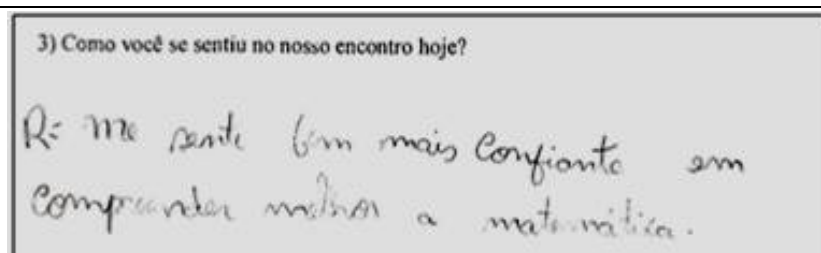 3) Como você se sentiu no nosso encontro hoje?
R: Me sente bem mais confiante em
compreender melhor a matemática.